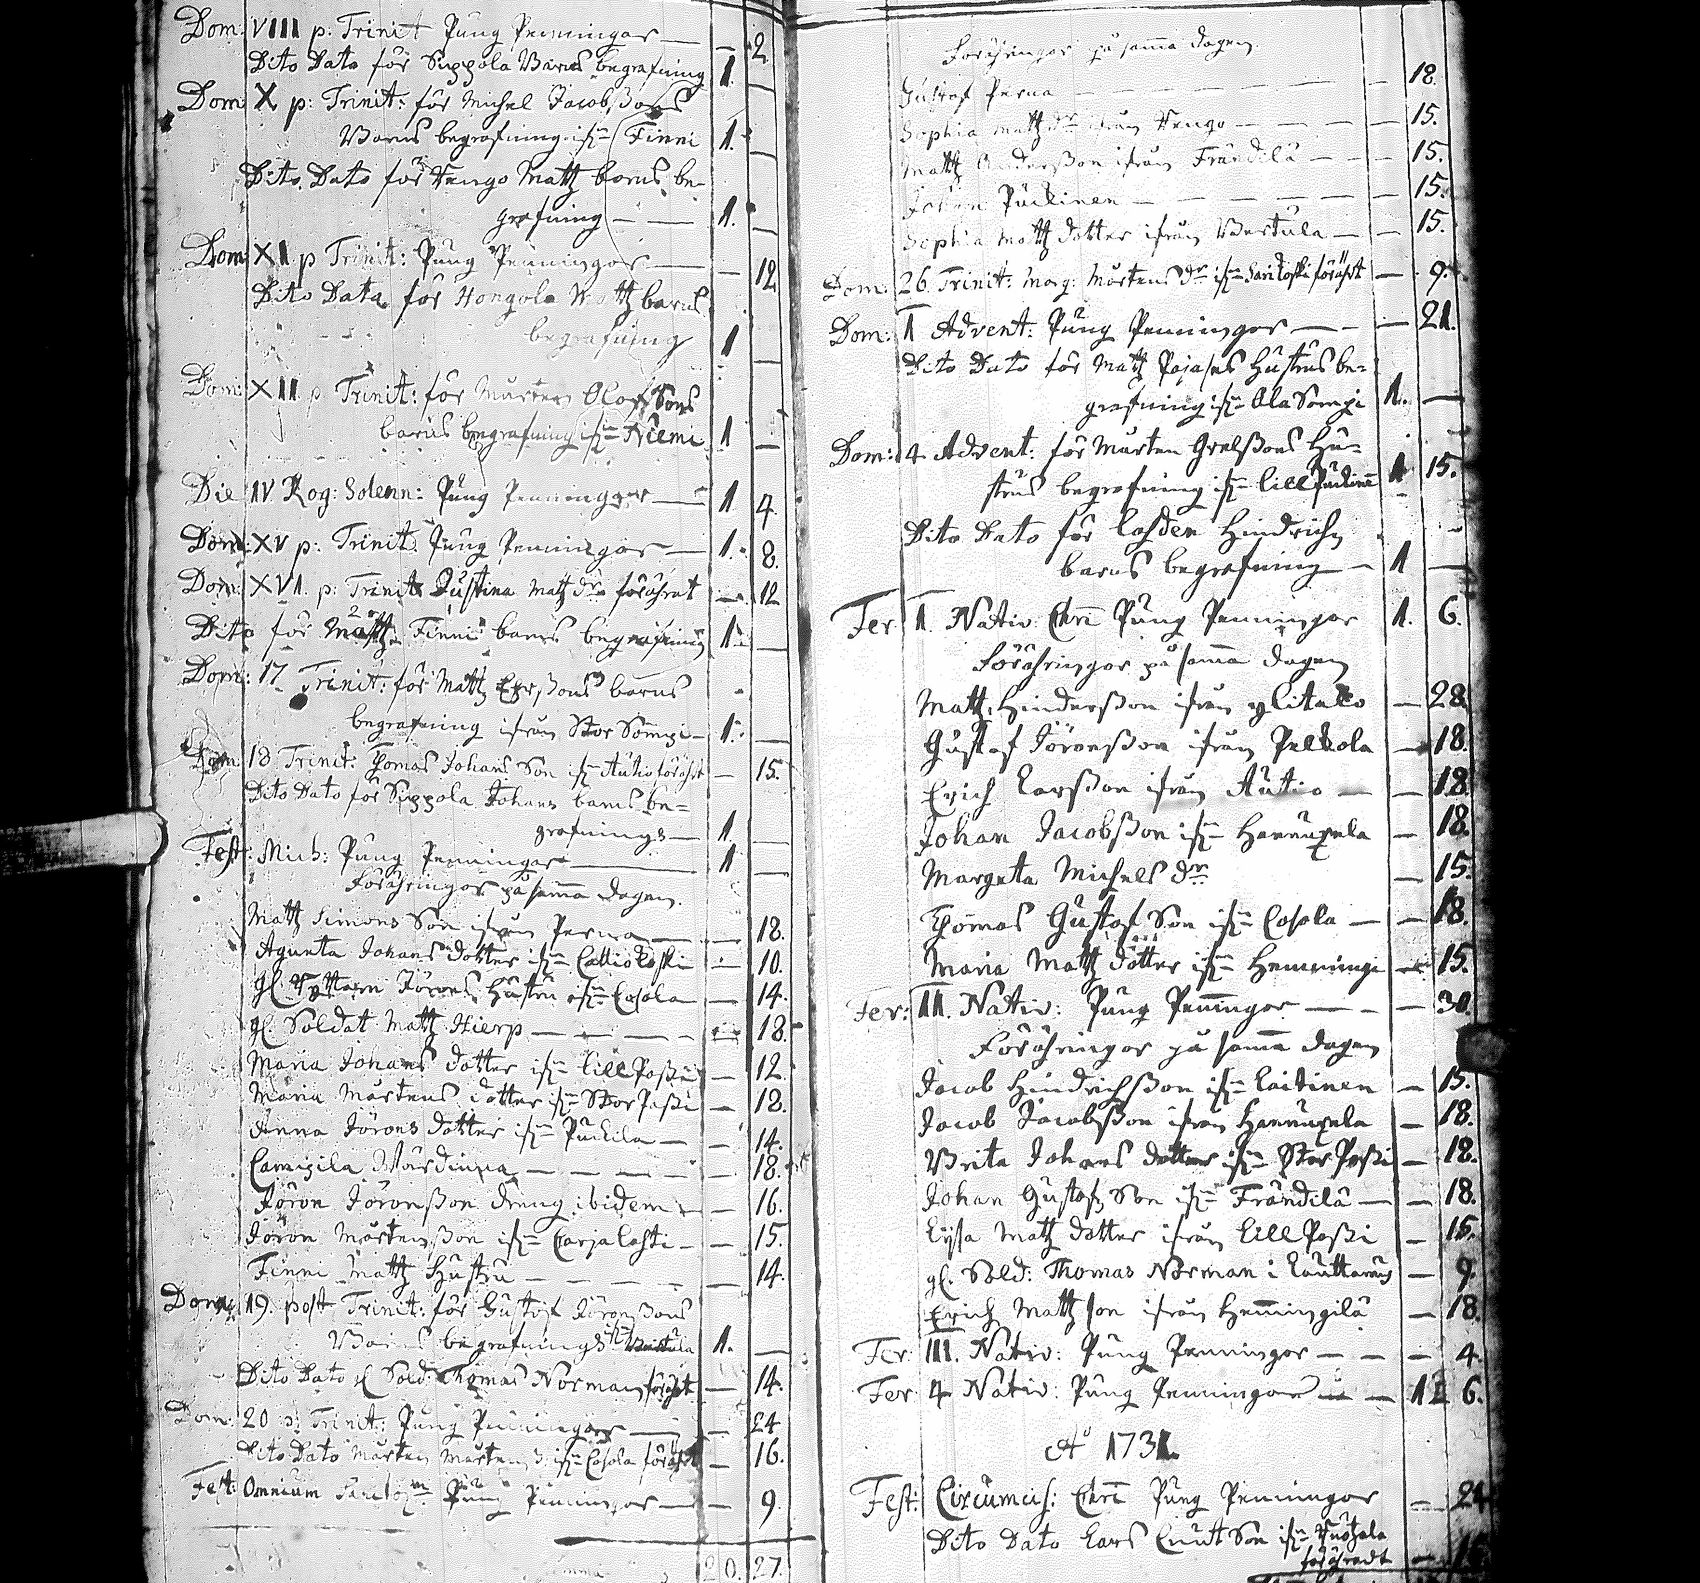 Dom: VIII p: Trinit Pung Penningar — — 2.
Dito Dato för Suppola Barns begrafning 1.
Dom X p: Trinit: för Michel Jacobssons
Barns begrafning ifr: Finni 1. —
Dito Dato för Hengo Matz barns be-
grafning — — 1. —
Dom XI p Trinit: Pung Penningar — — 12
Dito Dato för Hongola Matz barns
begrafning 1 —
Dom: XII p Trinit: för Mårten Olofssons
barns begrafning ifr: Niemi 1 —
Die IV Rog: Solenn: Pung Penningar — 1 4.
Dom: XV p: Trinit: Pung Penningar — 1. 8.
Dom: XVI. p: Trinit Justina Matz dr förährat — 12
Dito för Matz Finni barns begrafning 1. —
Dom: 17 Trinit: för Matz Erssons barns
begrafning ifrån Stor Sompi — 1. —
Dom: 18 Trinit: Thomas Johans Son ifr: Autio förährt — 15.
Dito Dato för Suppola Johans barns be-
grafnings — 1. —
Fest: Mich: Pung Penningar — 1 —
Föräringar på samma dagen.
Matz Simons Son ifrån Perna — — 18.
Agneta Johans dotter ifr: Calliokoski — 10.
gl. Ryttarn Jörens Hustru ifr: Cosola — 14.
gl. Soldat Matz Hierp — — — 18.
Maria Johans dotter ifr: Lill Passi — 12.
Maria Mårtens dotter ifr: Stor Passi — 18.
Anna Jörens dotter ifr: Puckila — — 14.
— — — — 18.
Jören Jörensson dreng ibidem — — 16.
Jören Mårtensson ifr: Carja — 15.
Finni Matz Hustru — — — — 14.
Dom: 19. post Trinit: för Gustaf Jörenssons
Barns begrafnings ifr: 1. —
Dito Dato gl Sold: Thomas Norman förährt — 14.
Dom: 20 p: Trinit: Pung Penningar — — 24
Dito Dato Mårten Mårtens S. ifr: Cosola förährt — 16.
Fest: Omnium Sanctorm Pung Penningar — — 9.
20. 27.
Föräringar på samma dagen.
Gustaf Perna — — — — 18.
Sophia Matz dr ifrån Hengo — — — 15.
Matz Andersson ifrån Frändilä — — — 15.
Johan Puckinen — — — — 15.
Sophia Matz dotter ifrån Wertula — — 15.
Dom: 26. Trinit: Marg: Mårtens dr ifr: Sarikoski förährt — 9.
Dom: I Advent: Pung Penningar — — — 21.
Dito Dato för Matz Pajases Hustrus be-
grafning ifr: Ala Sompi 1. —
Dom: 4 Advent: för Mårten Grelssons Hu-
strus begrafning ifr: Lill 1 15.
Dito Dato för Hindrichs
barns begrafning — 1 —
Fer I. Nativ: Chri Pung Penningar 1. 6.
Föräringar på samma dagen
Matz Hindersson ifrån ylitalo — 28.
Gustaf Jörensson ifrån Pelkola — 18.
Erich Larsson ifrån Autio — — 18.
Johan Jacobsson ifr: Hannukela — 18.
Margeta Michels dr — 15.
Thomas Gustaf Son ifr: Cosola — — 18.
Maria Matz dotter ifr: Hemmingi — 15.
Fer: II. Nativ: Pung Penningar — — — 30.
Föräringar på samma dagen
Jacob Hindrichsson ifr: Laitinen — 15.
Jacob Jacobsson ifrån Hannukela — 18.
Brita Johans dotter ifr: Stor Passi — 18.
Johan Gustafs Son ifr: Frändilä — — 18.
Lysa Matz dotter ifrån Lill Passi — 15.
gl. Sold: Thomas Norman i — 9.
Erich Matzson ifrån Hemmingilä — 18.
Fer: III. Nativ: Pung Penningar — — — 4.
Fer 4 Nativ: Pung Penningar — — 1 6.
Ao 1731.
Fest: Circumcis: Chri Pung Penningar — 24
Dito Dato Lars Cnutt Son ifr:
förähradt —